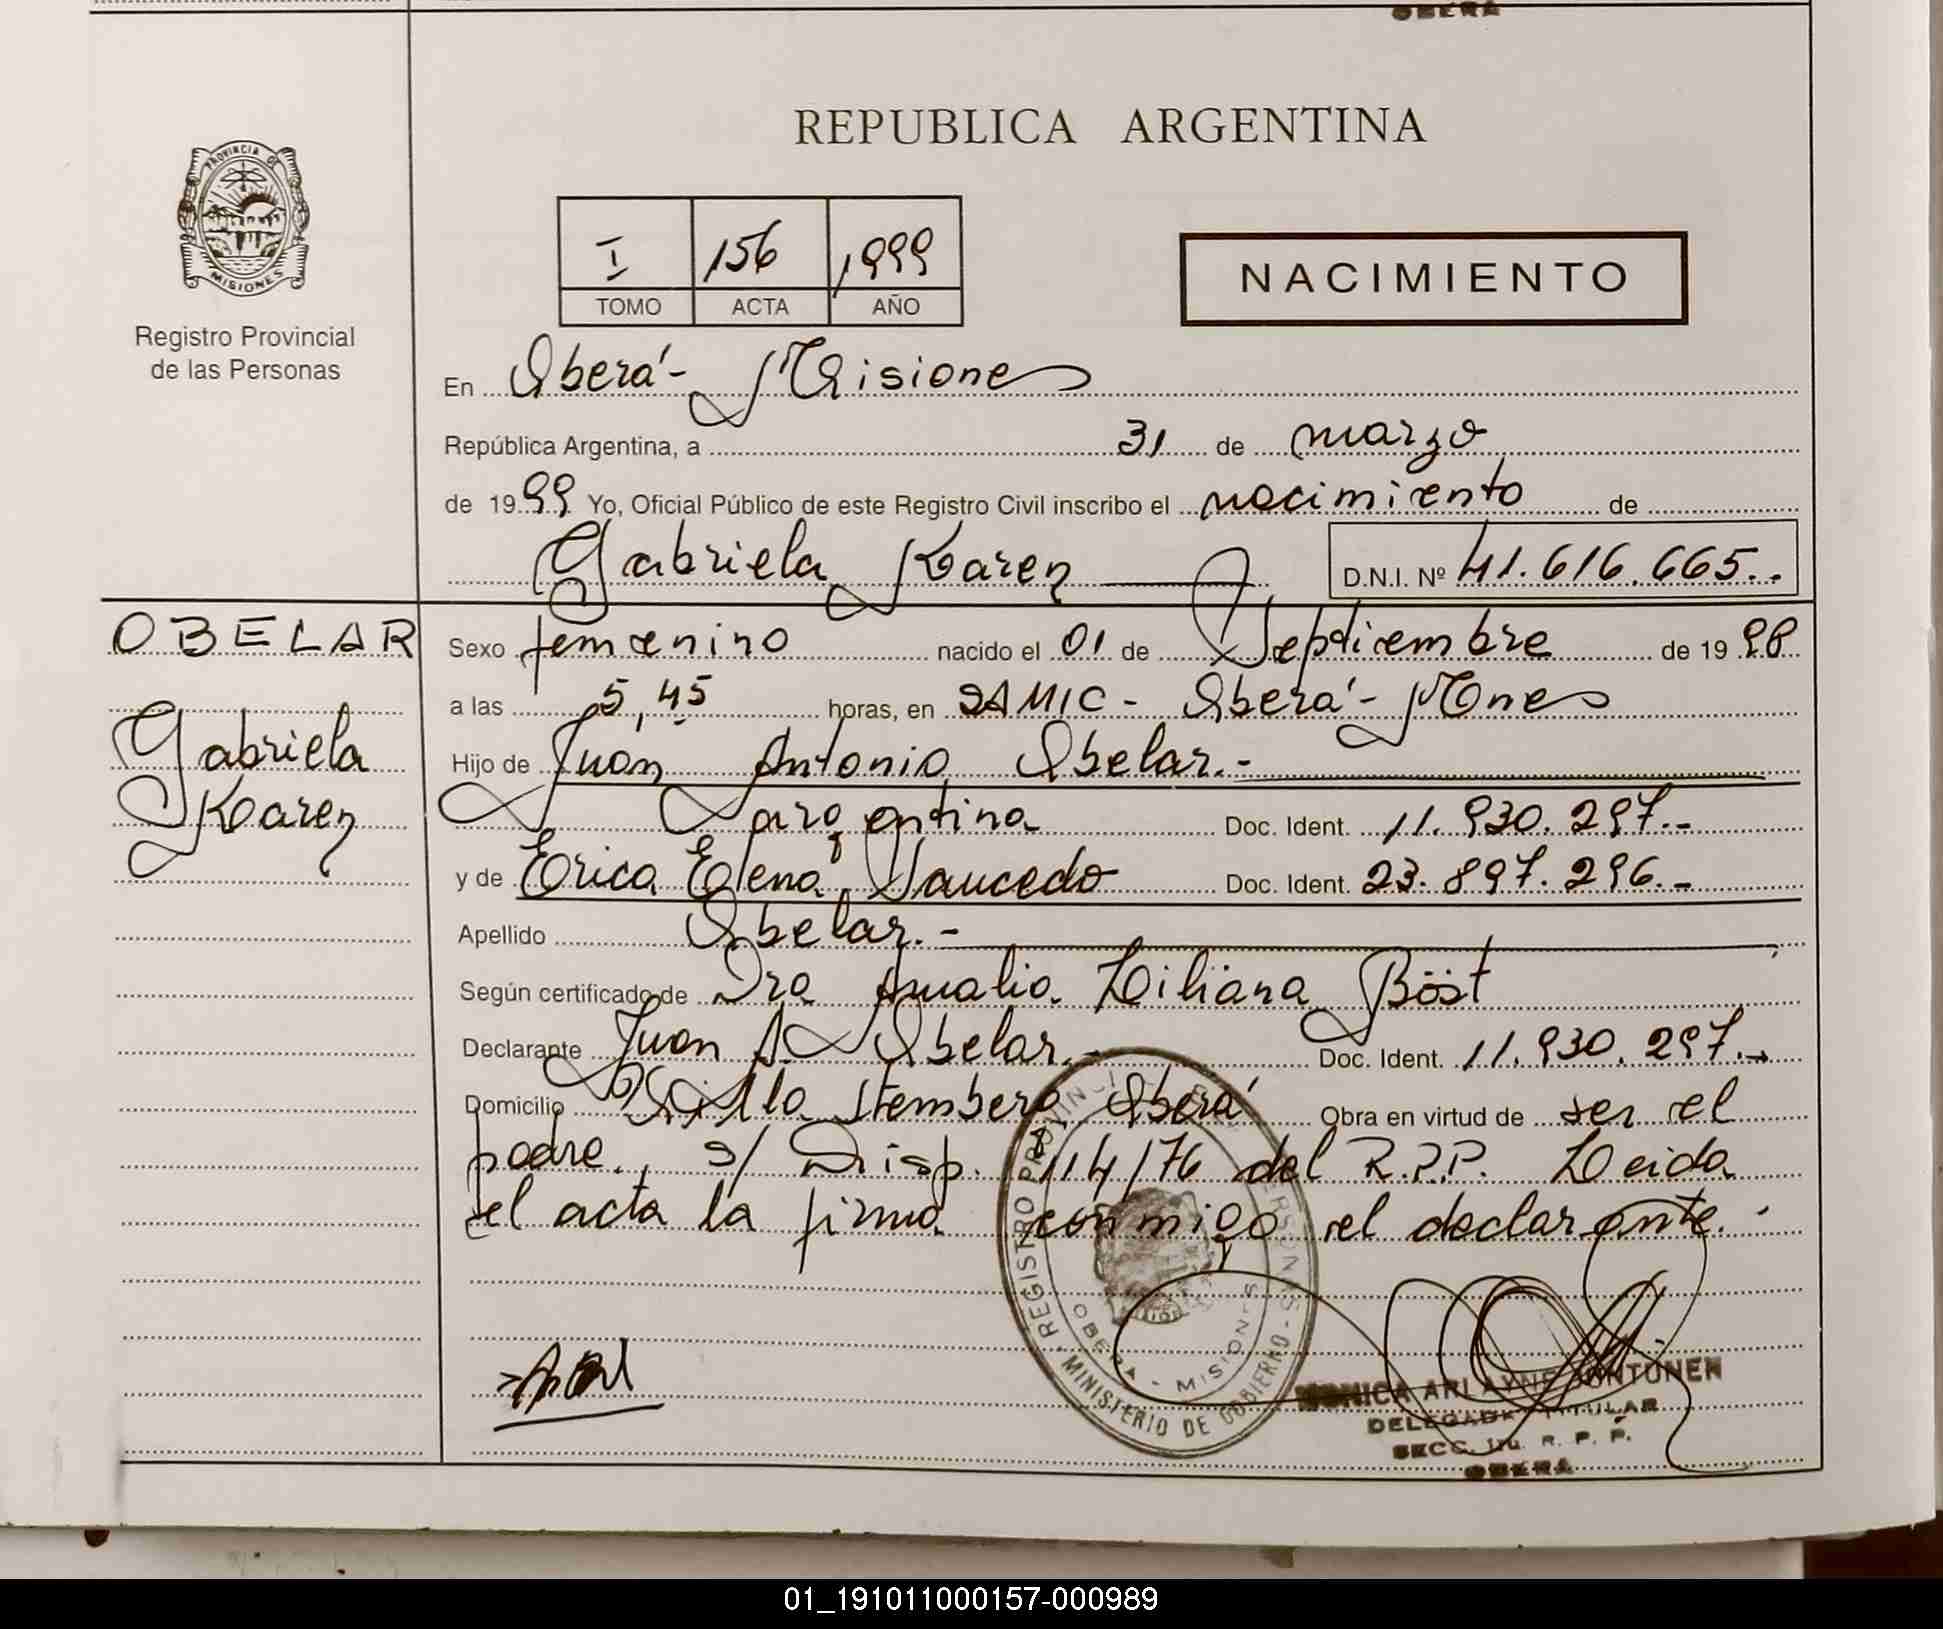 OBERÁ
REPUBLICA ARGENTINA
PROVINCIA DE
MISIONES
Registro Provincial
de las Personas
I 156 1999
TOMO ACTA AÑO
NACIMIENTO
En Oberá - Misiones
República Argentina, a 31 de marzo
de 1999 Yo, Oficial Público de este Registro Civil inscribo el nacimiento de
Gabriela Karen D.N.I. Nº 41.616.665..
OBELAR
Gabriela
Karen
Sexo femenino nacido el 01 de Septiembre de 1998
a las 5,45 horas, en SAMIC - Oberá - Mnes
Hijo de Juan Antonio Obelar.-
argentina Doc. Ident. 11.930.297.-
y de Erica Elena Saucedo Doc. Ident. 23.897.296.-
Apellido Obelar.-
Según certificado de Dra Amalia Liliana Böst
Declarante Juan A. Obelar.- Doc. Ident. 11.930.297.-
Domicilio Villa Stemberg Oberá Obra en virtud de ser el
padre., s/ Disp. 114/76 del R.P.P. Leida
el acta la firma conmigo el declarante.-
REGISTRO PROVINCIAL DE LAS PERSONAS
MINISTERIO DE GOBIERNO
OBERA - MISIONES
MONICA ARLAYNE
DELEGADA TITULAR
SECC. R. P. P.
OBERÁ
01_191011000157-000989